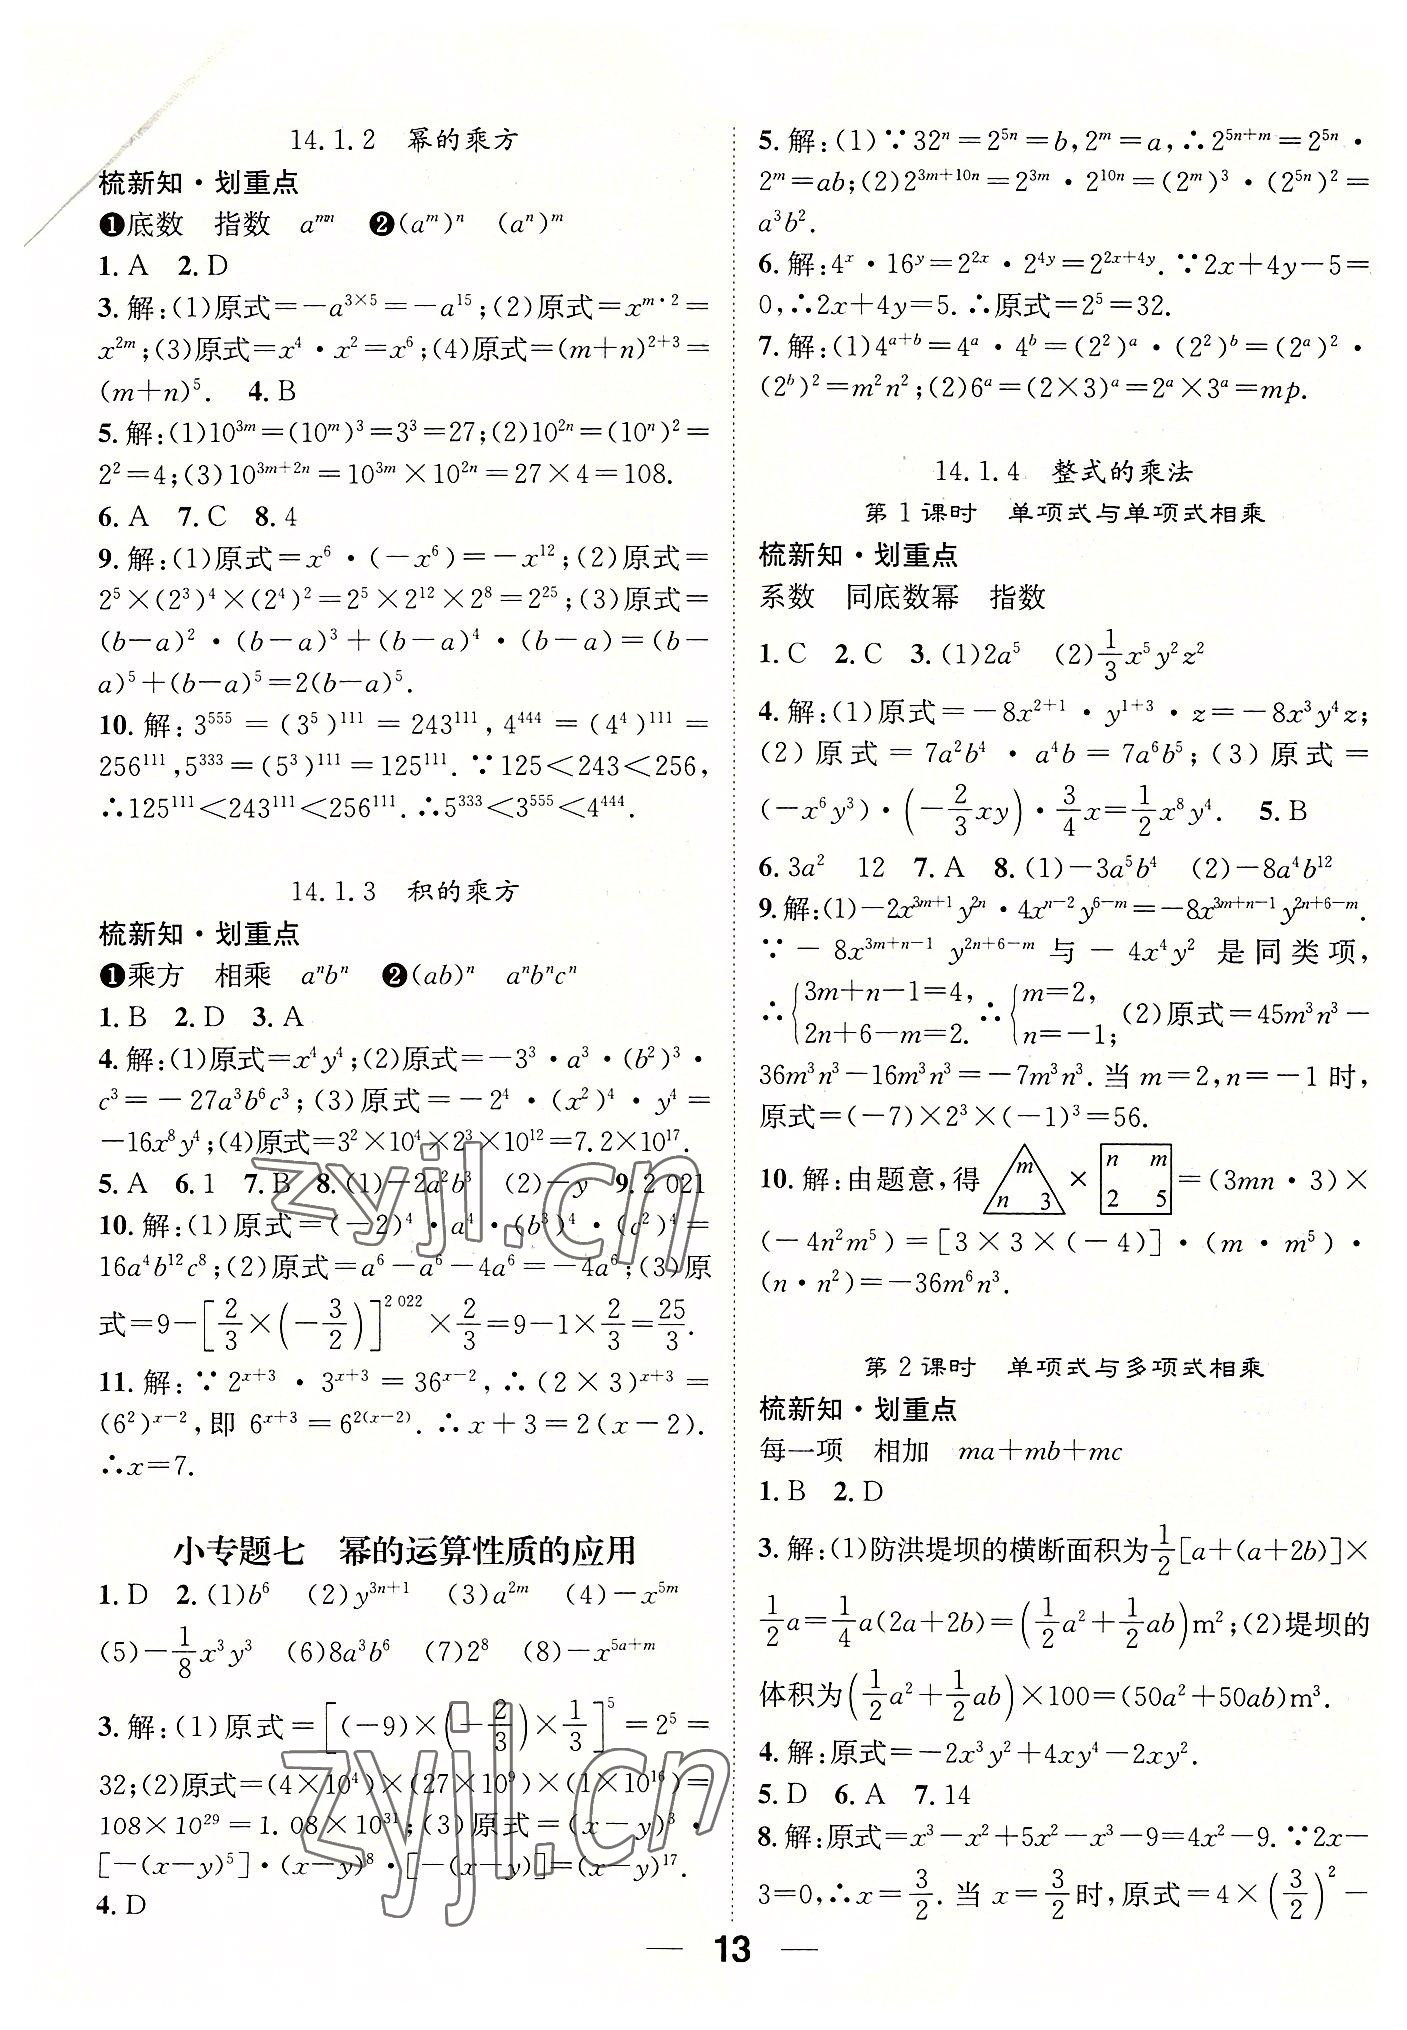 14.1.2 幂的乘方
梳新知·划重点
❶底数 指数 aᵐⁿ ❷(aᵐ)ⁿ (aⁿ)ᵐ
1. A 2. D
3. 解:(1)原式=-a^{3×5}=-a^{15};(2)原式=x^{m·2}=
x^{2m};(3)原式=x^4·x^2=x^6;(4)原式=(m+n)^{2+3}=
(m+n)^5. 4. B
5. 解:(1)10^{3m}=(10^m)^3=3^3=27;(2)10^{2n}=(10^n)^2=
2^2=4;(3)10^{3m+2n}=10^{3m}×10^{2n}=27×4=108.
6. A 7. C 8. 4
9. 解:(1)原式=x^6·(-x^6)=-x^{12};(2)原式=
2^5×(2^3)^4×(2^4)^2=2^5×2^{12}×2^8=2^{25};(3)原式=
(b-a)^2·(b-a)^3+(b-a)^4·(b-a)=(b-
a)^5+(b-a)^5=2(b-a)^5.
10. 解:3^{555}=(3^5)^{111}=243^{111},4^{444}=(4^4)^{111}=
256^{111},5^{333}=(5^3)^{111}=125^{111}.∵125<243<256,
∴125^{111}<243^{111}<256^{111}.∴5^{333}<3^{555}<4^{444}.
14.1.3 积的乘方
梳新知·划重点
❶乘方 相乘 a^n b^n ❷(ab)^n a^n b^n c^n
1. B 2. D 3. A
4. 解:(1)原式=x^4y^4;(2)原式=-3^3·a^3·(b^2)^3·
c^3=-27a^3b^6c^3;(3)原式=-2^4·(x^2)^4·y^4=
-16x^8y^4;(4)原式=3^2×10^4×2^3×10^{12}=7.2×10^{17}.
5. A 6. 1 7. B 8. (1)-2a^2b^3 (2)-y 9. 2 021
10. 解:(1)原式=(-2)^4·a^4·(b^3)^4·(c^2)^4=
16a^4b^{12}c^8;(2)原式=a^6-a^6-4a^6=-4a^6;(3)原
式=9-[2/3×(-3/2)]^{2 022}×2/3=9-1×2/3=25/3.
11. 解:∵2^{x+3}·3^{x+3}=36^{x-2},∴(2×3)^{x+3}=
(6^2)^{x-2},即 6^{x+3}=6^{2(x-2)}.∴x+3=2(x-2).
∴x=7.
小专题七 幂的运算性质的应用
1. D 2. (1)b^6 (2)y^{3n+1} (3)a^{2m} (4)-x^{5m}
(5)-1/8x^3y^3 (6)8a^3b^6 (7)2^8 (8)-x^{5a+m}
3. 解:(1)原式=[(-9)×(-2/3)×1/3]^5=2^5=
32;(2)原式=(4×10^4)×(27×10^9)×(1×10^{16})=
108×10^{29}=1.08×10^{31};(3)原式=(x-y)^3·
[-(x-y)^5]·(x-y)^8·[-(x-y)]=(x-y)^{17}.
4. D
5. 解:(1)∵32^n=2^{5n}=b,2^m=a,∴2^{5n+m}=2^{5n}·
2^m=ab;(2)2^{3m+10n}=2^{3m}·2^{10n}=(2^m)^3·(2^{5n})^2=
a^3b^2.
6. 解:4^x·16^y=2^{2x}·2^{4y}=2^{2x+4y}.∵2x+4y-5=
0,∴2x+4y=5.∴原式=2^5=32.
7. 解:(1)4^{a+b}=4^a·4^b=(2^2)^a·(2^2)^b=(2^a)^2·
(2^b)^2=m^2n^2;(2)6^a=(2×3)^a=2^a×3^a=mp.
14.1.4 整式的乘法
第1课时 单项式与单项式相乘
梳新知·划重点
系数 同底数幂 指数
1. C 2. C 3. (1)2a^5 (2)1/3x^5y^2z^2
4. 解:(1)原式=-8x^{2+1}·y^{1+3}·z=-8x^3y^4z;
(2)原式=7a^2b^4·a^4b=7a^6b^5;(3)原式=
(-x^6y^3)·(-2/3xy)·3/4x=1/2x^8y^4. 5. B
6. 3a^2 12 7. A 8. (1)-3a^5b^4 (2)-8a^4b^{12}
9. 解:(1)-2x^{3m+1}y^{2n}·4x^{n-2}y^{6-m}=-8x^{3m+n-1}y^{2n+6-m}.
∵-8x^{3m+n-1}y^{2n+6-m}与-4x^4y^2是同类项,
∴{3m+n-1=4, 2n+6-m=2. ∴{m=2, n=-1; (2)原式=45m^3n^3-
36m^3n^3-16m^3n^3=-7m^3n^3.当m=2,n=-1时,
原式=(-7)×2^3×(-1)^3=56.
10. 解:由题意,得 m n 3 × n m 2 5 =(3mn·3)×
(-4n^2m^5)=[3×3×(-4)]·(m·m^5)·
(n·n^2)=-36m^6n^3.
第2课时 单项式与多项式相乘
梳新知·划重点
每一项 相加 ma+mb+mc
1. B 2. D
3. 解:(1)防洪堤坝的横断面积为1/2[a+(a+2b)]×
1/2a=1/4a(2a+2b)=(1/2a^2+1/2ab)m^2;(2)堤坝的
体积为(1/2a^2+1/2ab)×100=(50a^2+50ab)m^3.
4. 解:原式=-2x^3y^2+4xy-2xy^2.
5. D 6. A 7. 14
8. 解:原式=x^3-x^2+5x^2-x^3-9=4x^2-9.∵2x-
3=0,∴x=3/2.当x=3/2时,原式=4×(3/2)^2-
— 13 —
zyjl.cn
zyjl.cn